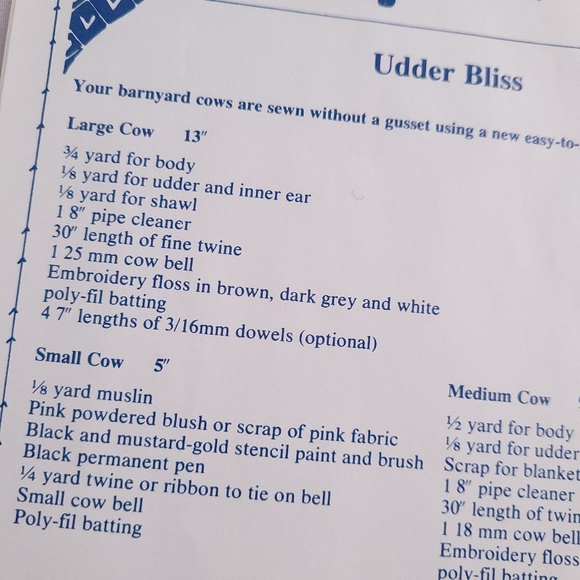 Udder Bliss
Your barnyard cows are sewn without a gusset using a new easy-to-
Large Cow 13"
¾ yard for body
⅛ yard for udder and inner ear
⅛ yard for shawl
1 8" pipe cleaner
30" length of fine twine
1 25 mm cow bell
Embroidery floss in brown, dark grey and white
poly-fil batting
4 7" lengths of 3/16mm dowels (optional)
Small Cow 5"
⅛ yard muslin
Pink powdered blush or scrap of pink fabric
Black and mustard-gold stencil paint and brush
Black permanent pen
¼ yard twine or ribbon to tie on bell
Small cow bell
Poly-fil batting
Medium Cow
½ yard for body
⅛ yard for udder
Scrap for blanket
1 8" pipe cleaner
30" length of twin
1 18 mm cow bell
Embroidery floss
poly-fil batting